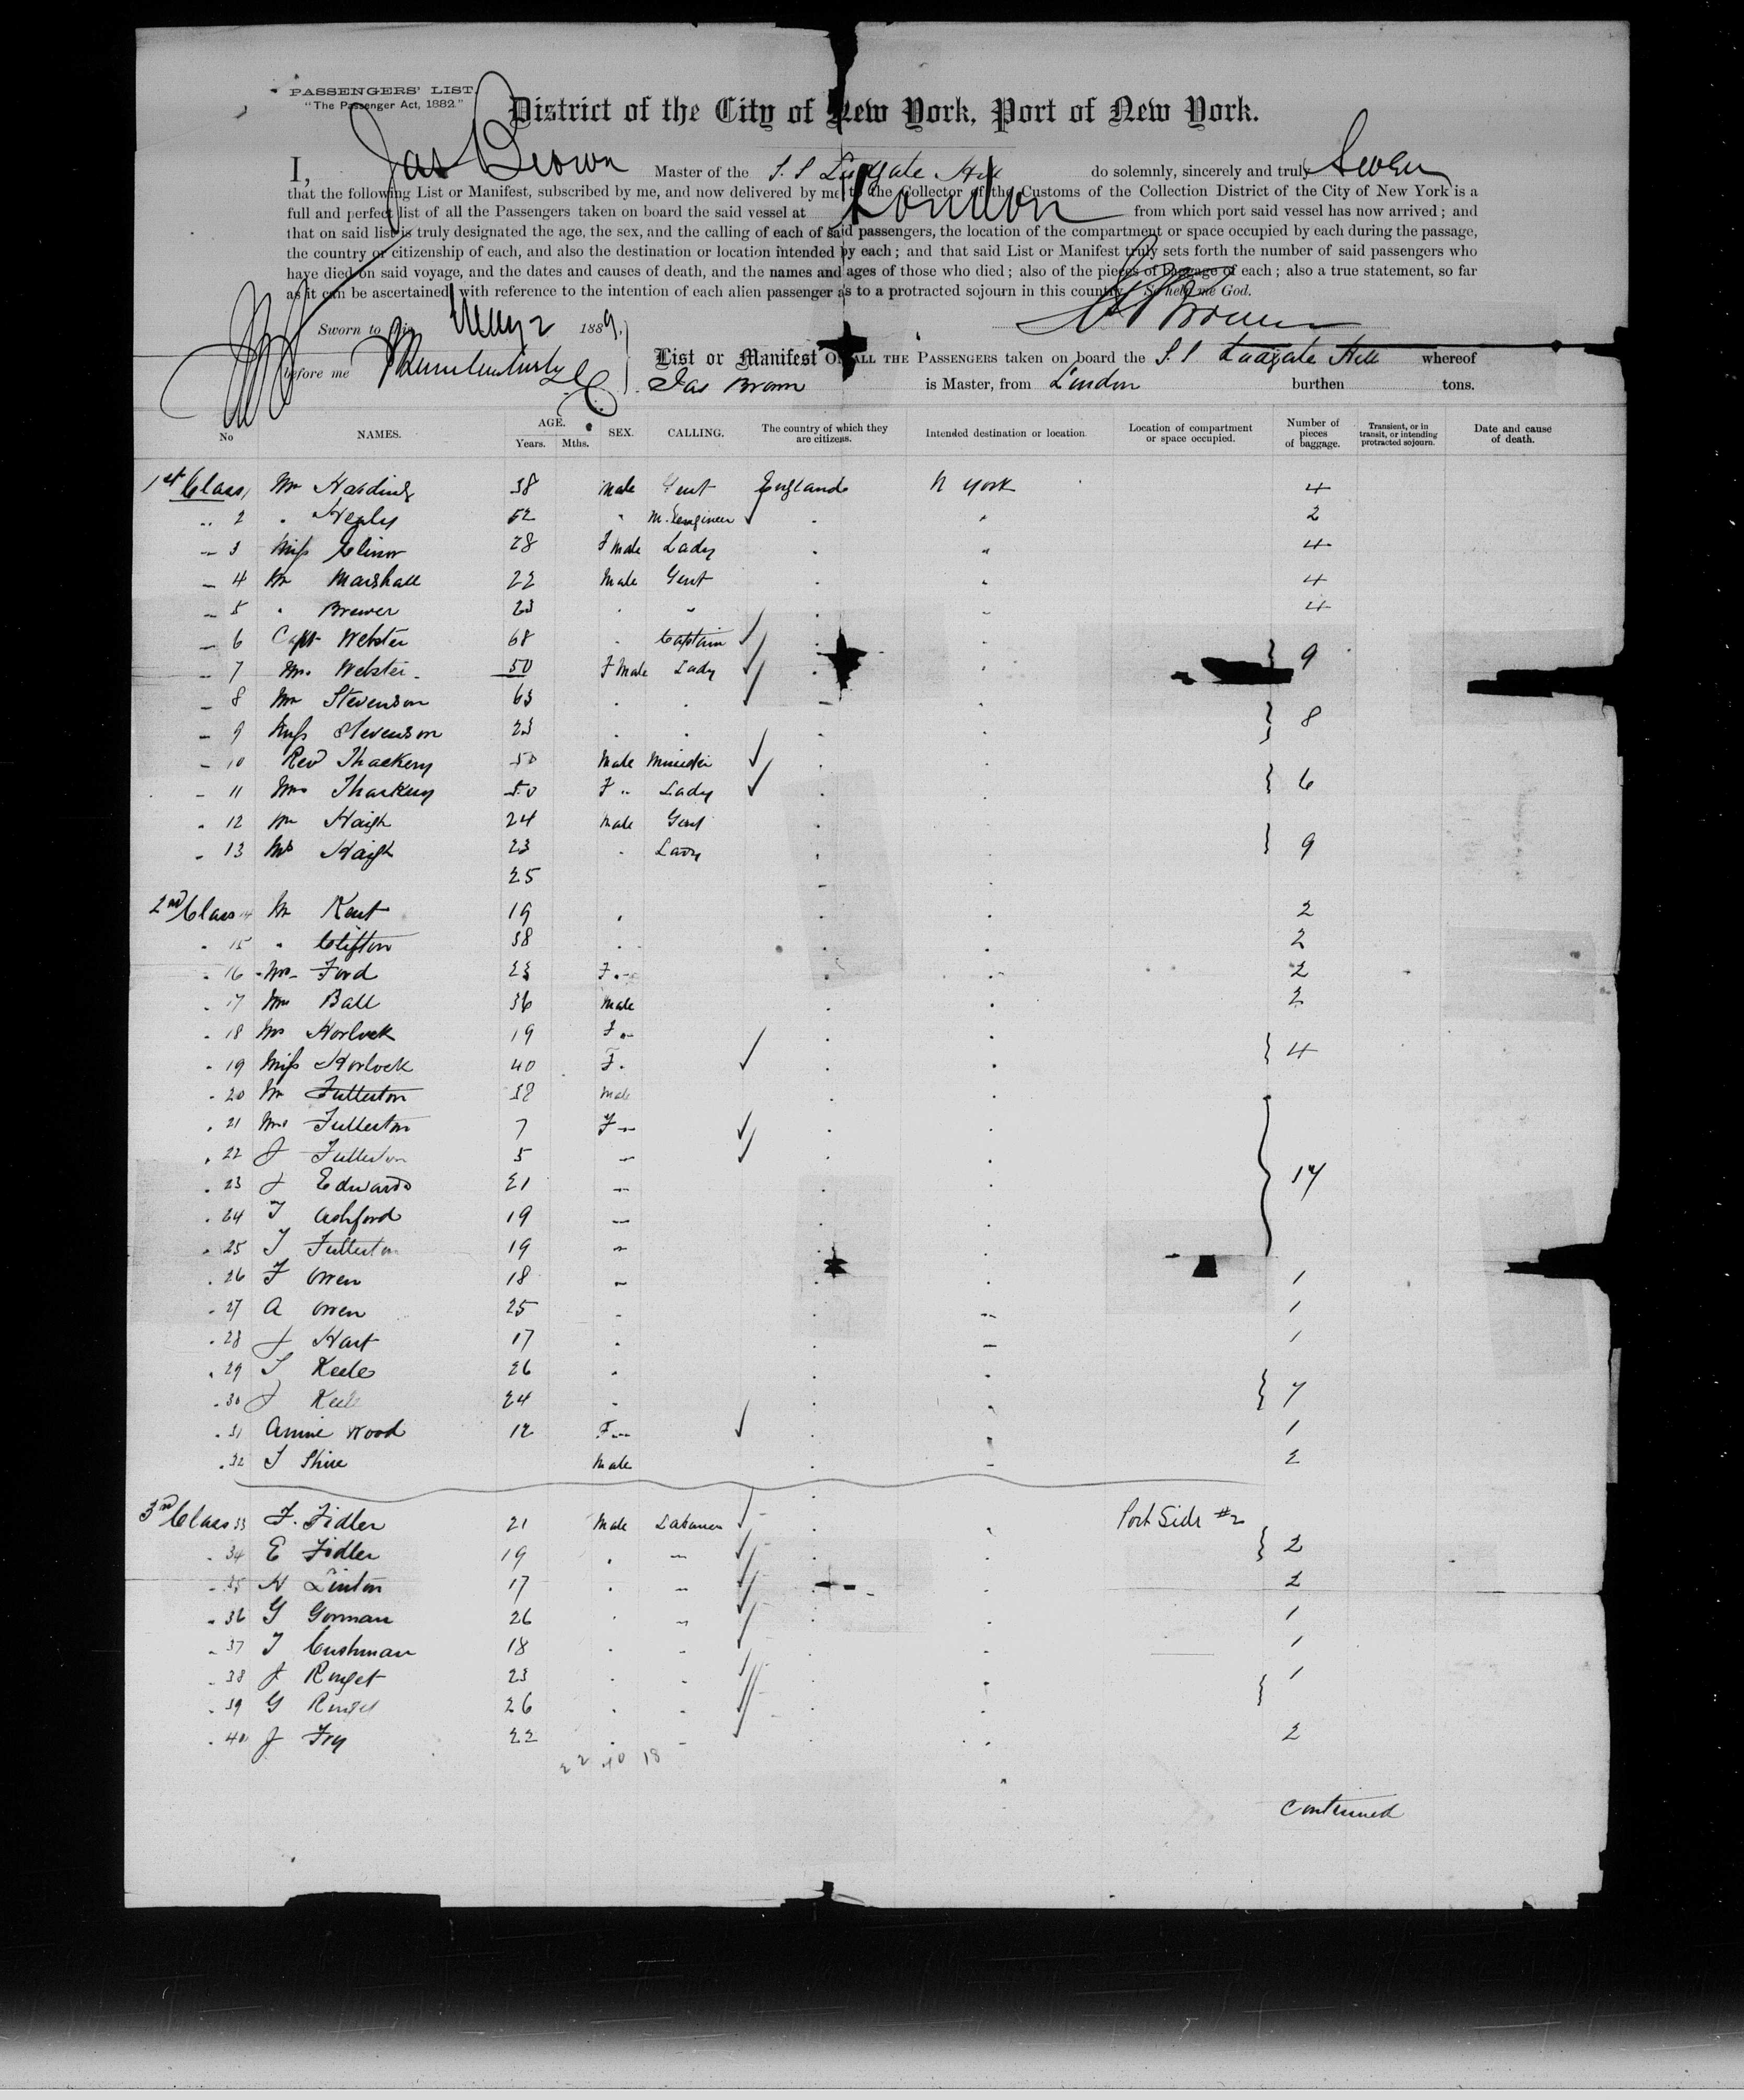 PASSENGERS' LIST
"The Passenger Act, 1882."
District of the City of New York, Port of New York.
I, Jas Brown Master of the S.S Ludgate Hill do solemnly, sincerely and truly Swear
that the following List or Manifest, subscribed by me, and now delivered by me to the Collector of the Customs of the Collection District of the City of New York is a
full and perfect list of all the Passengers taken on board the said vessel at London from which port said vessel has now arrived; and
that on said list is truly designated the age, the sex, and the calling of each of said passengers, the location of the compartment or space occupied by each during the passage,
the country or citizenship of each, and also the destination or location intended by each; and that said List or Manifest truly sets forth the number of said passengers who
have died on said voyage, and the dates and causes of death, and the names and ages of those who died; also of the pieces of baggage of each; also a true statement, so far
as it can be ascertained, with reference to the intention of each alien passenger as to a protracted sojourn in this country. So help me God.
Sworn to this May 2 1889. Brown
before me
List or Manifest OF ALL THE PASSENGERS taken on board the S.S Ludgate Hill whereof
Jas Brown is Master, from London burthen tons.
No NAMES. AGE. Years. Mths. SEX. CALLING. The country of which they are citizens. Intended destination or location. Location of compartment or space occupied. Number of pieces of baggage. Transient, or in transit, or intending protracted sojourn. Date and cause of death.
1st Class 1 Mr Harding 38 Male Gent England N York 4
" 2 " Henly 52 " M. Engineer " " 2
" 3 Miss Elinor 28 Fmale Lady " " 4
" 4 Mr Marshall 22 Male Gent " " 4
" 5 " Brewer 23 " " " " 4
" 6 Capt Webster 68 " Captain " "
" 7 Mrs Webster 50 Fmale Lady " " 9
" 8 Mrs Stevenson 63 " " " "
" 9 Miss Stevenson 23 " " " " 8
" 10 Rev Thackery 50 Male Minister " "
" 11 Mrs Thackery 50 F " Lady " " 6
" 12 Mr Haigh 24 Male Gent " "
" 13 Mrs Haigh 23 " Lady " " 9
25 " "
2nd Class 14 Mr Kent 19 " " " 2
" 15 " Clifton 38 " " " 2
" 16 Mrs Ford 23 F " " " 2
" 17 Mr Ball 36 Male " " 2
" 18 Mrs Horlock 19 F " " "
" 19 Miss Horlock 40 F " " " 4
" 20 Mr Fullerton 38 Male " "
" 21 Mrs Fullerton 7 F " " "
" 22 J Fullerton 5 " " "
" 23 J Edwards 21 " " " 17
" 24 T Ashford 19 " " "
" 25 T Fullerton 19 " " "
" 26 F Owen 18 " " " 1
" 27 A Owen 25 " " " 1
" 28 J Hart 17 " " " 1
" 29 T Keele 26 " " "
" 30 J Keele 24 " " " 7
" 31 Annie Wood 12 F " " " 1
" 32 T Shire Male " " 2
3rd Class 33 F. Fidler 21 Male Labourer " " Port Side #2
" 34 E Fidler 19 " " " " 2
" 35 H Linton 17 " " " " 2
" 36 G Gorman 26 " " " " 1
" 37 T Cushman 18 " " " " 1
" 38 J Ringet 23 " " " " 1
" 39 G Ringet 26 " " " "
" 40 J Fry 22 " " " " 2
22 40 18
Continued